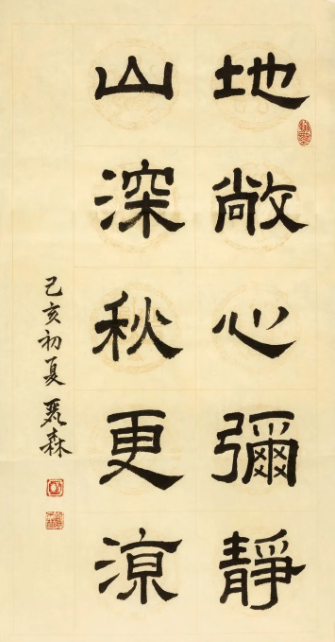 地敞心彌靜
山深秋更涼
己亥初夏 森